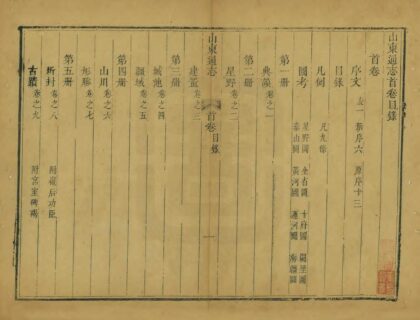 山東通志首卷目錄
首卷
序文 表一 新序六 原序十三
目錄
凡例 凡九條
圖考 星野圖 全省圖 十府圖 闕里圖
泰山圖 黃河圖 運河圖 海疆圖
第一冊
典謨卷之一
第二冊
星野卷之二
山東通志 首卷目錄 一
建置卷之三
第三冊
城池卷之四
疆域卷之五
第四冊
山川卷之六
形勝卷之七
第五冊
封卷之八 附 后功臣
古蹟卷之九 附宮室